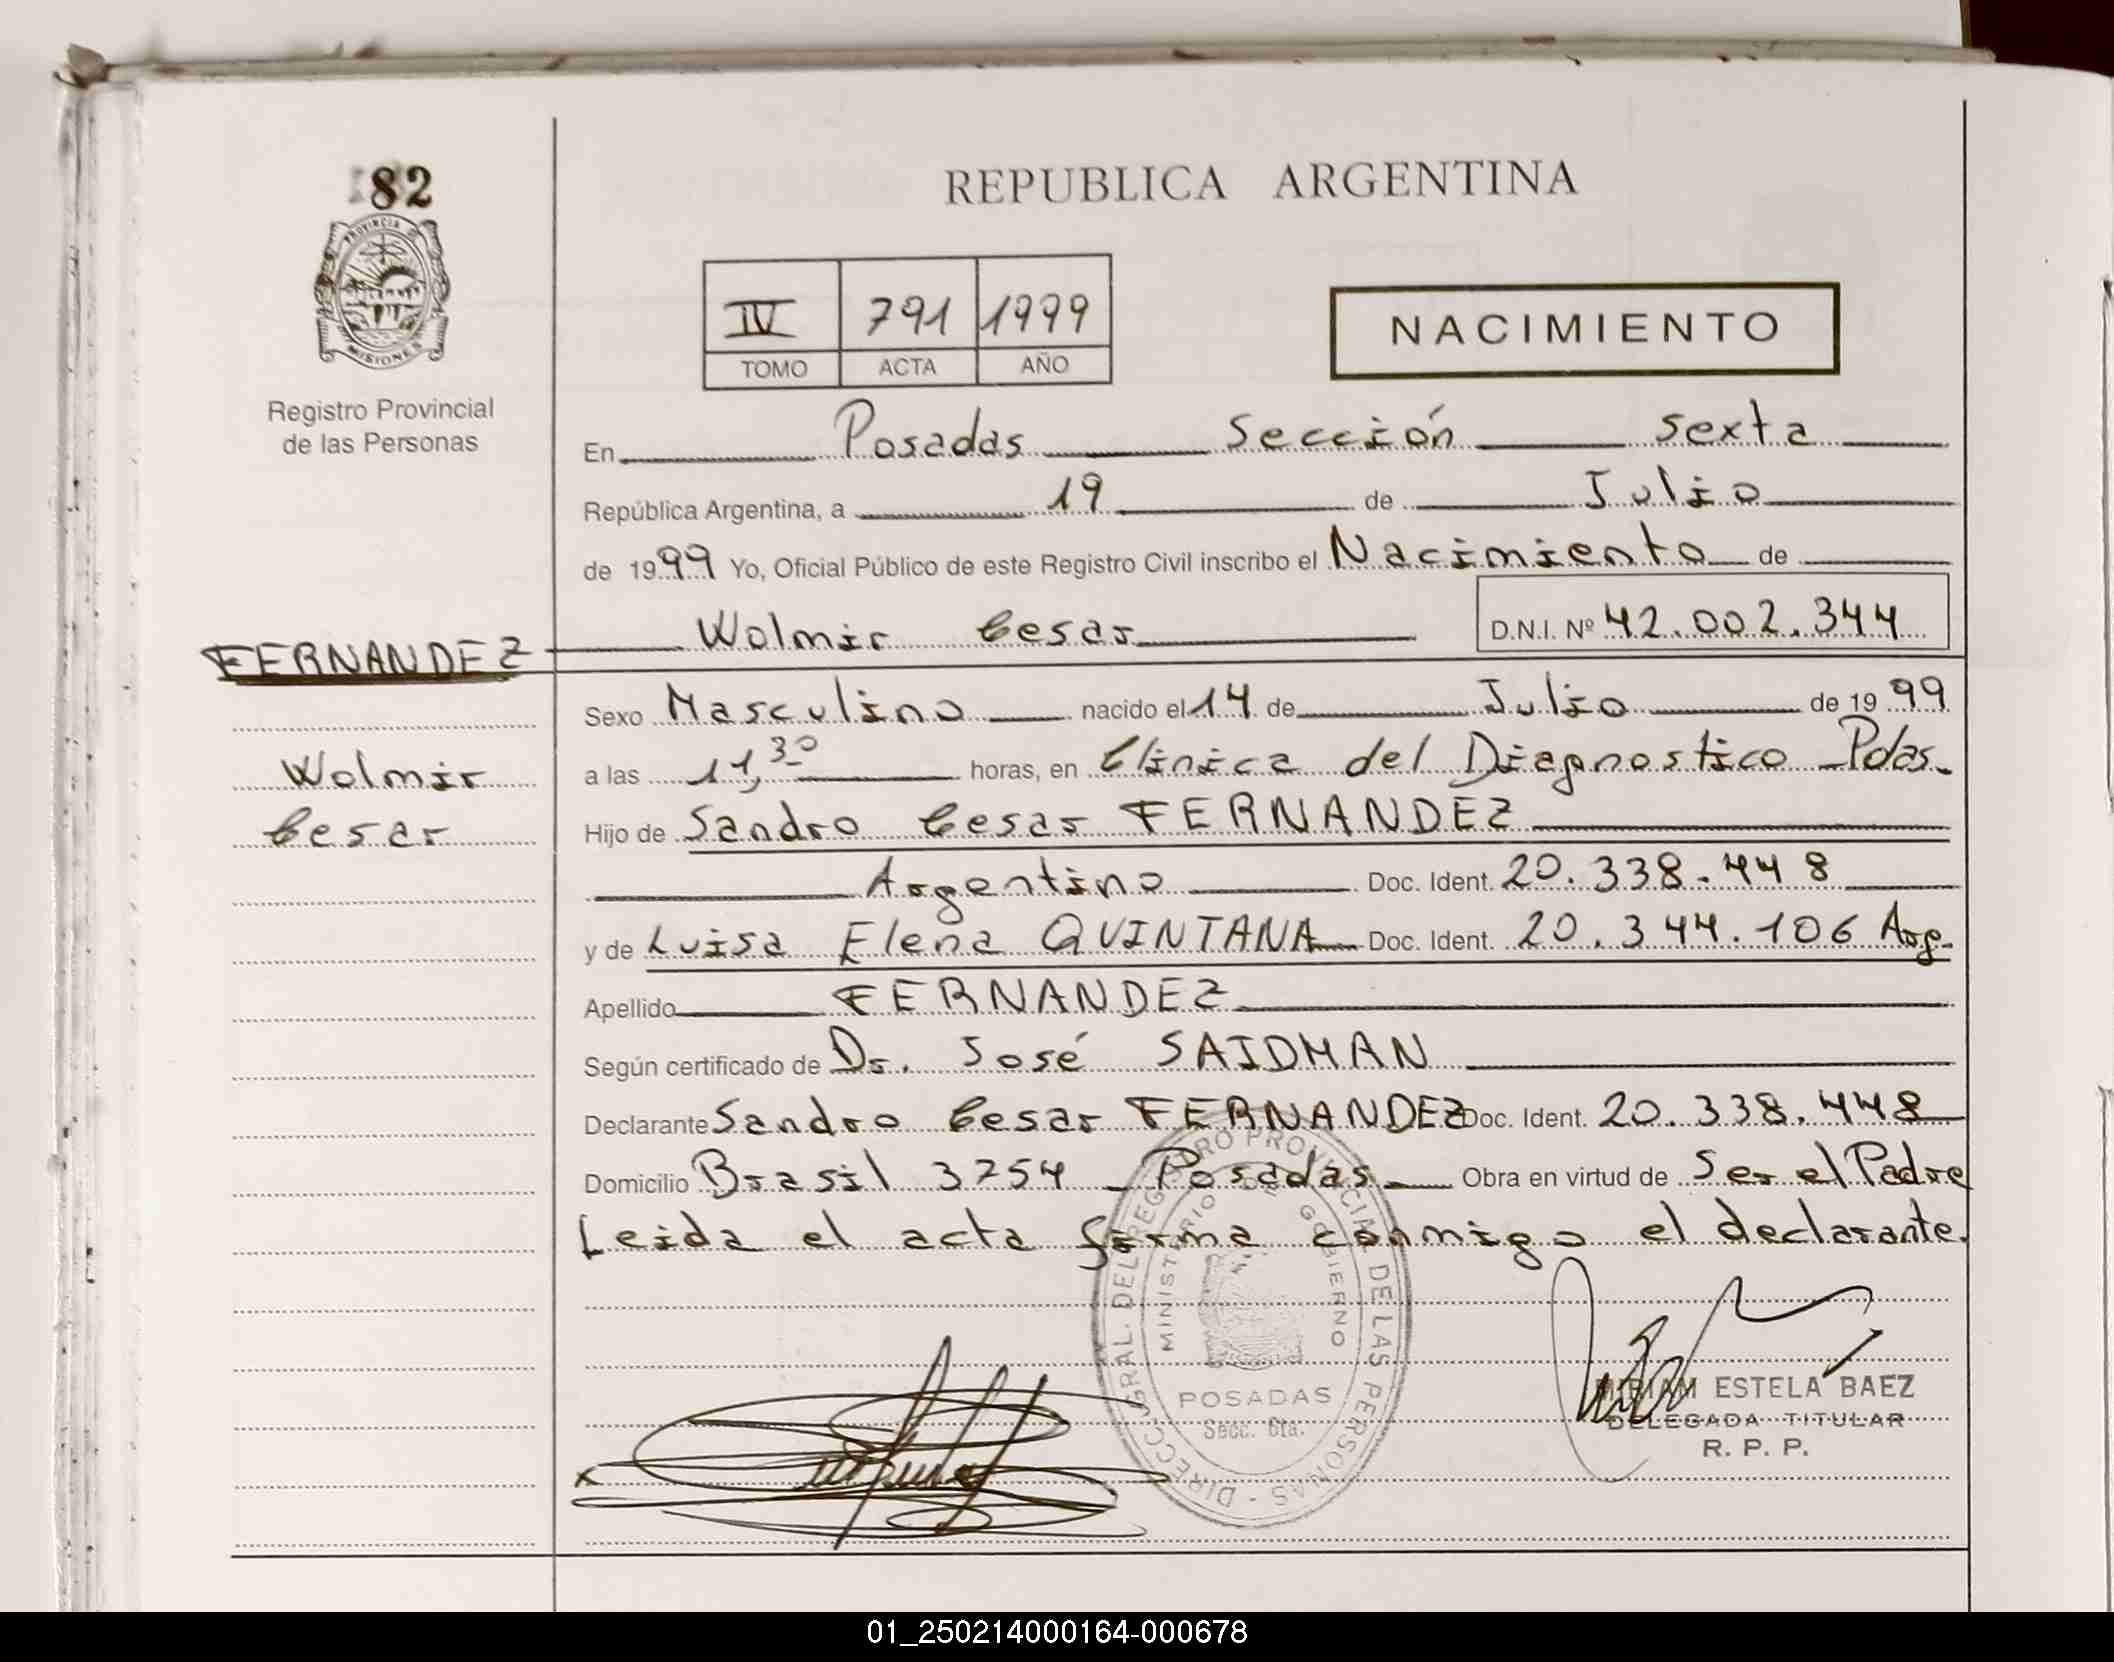 82
PROVINCIA DE
MISIONES
Registro Provincial
de las Personas
REPUBLICA ARGENTINA
IV 791 1999
TOMO ACTA AÑO
NACIMIENTO
En Posadas Sección sexta
República Argentina, a 19 de Julio
de 1999 Yo, Oficial Público de este Registro Civil inscribo el Nacimiento de
Wolmir Cesar D.N.I. Nº 42.002.344
FERNANDEZ
Wolmir
Cesar
Sexo Masculino nacido el 14 de Julio de 1999
a las 11,30 horas, en Clinica del Diagnostico Pdas.
Hijo de Sandro Cesar FERNANDEZ
Argentino Doc. Ident. 20.338.448
y de Luisa Elena QUINTANA Doc. Ident. 20.344.106 Arg.
Apellido FERNANDEZ
Según certificado de Dr. José SAIDMAN
Declarante Sandro Cesar FERNANDEZ Doc. Ident. 20.338.448
Domicilio Brasil 3254 - Posadas Obra en virtud de Ser el Padre
Leida el acta firma conmigo el declarante.
DIRECC. GRAL. DEL REGISTRO PROVINCIAL DE LAS PERSONAS
MINISTERIO DE GOBIERNO
POSADAS
Secc. 6ta.
MIRIAM ESTELA BAEZ
DELEGADA TITULAR
R. P. P.
01_250214000164-000678